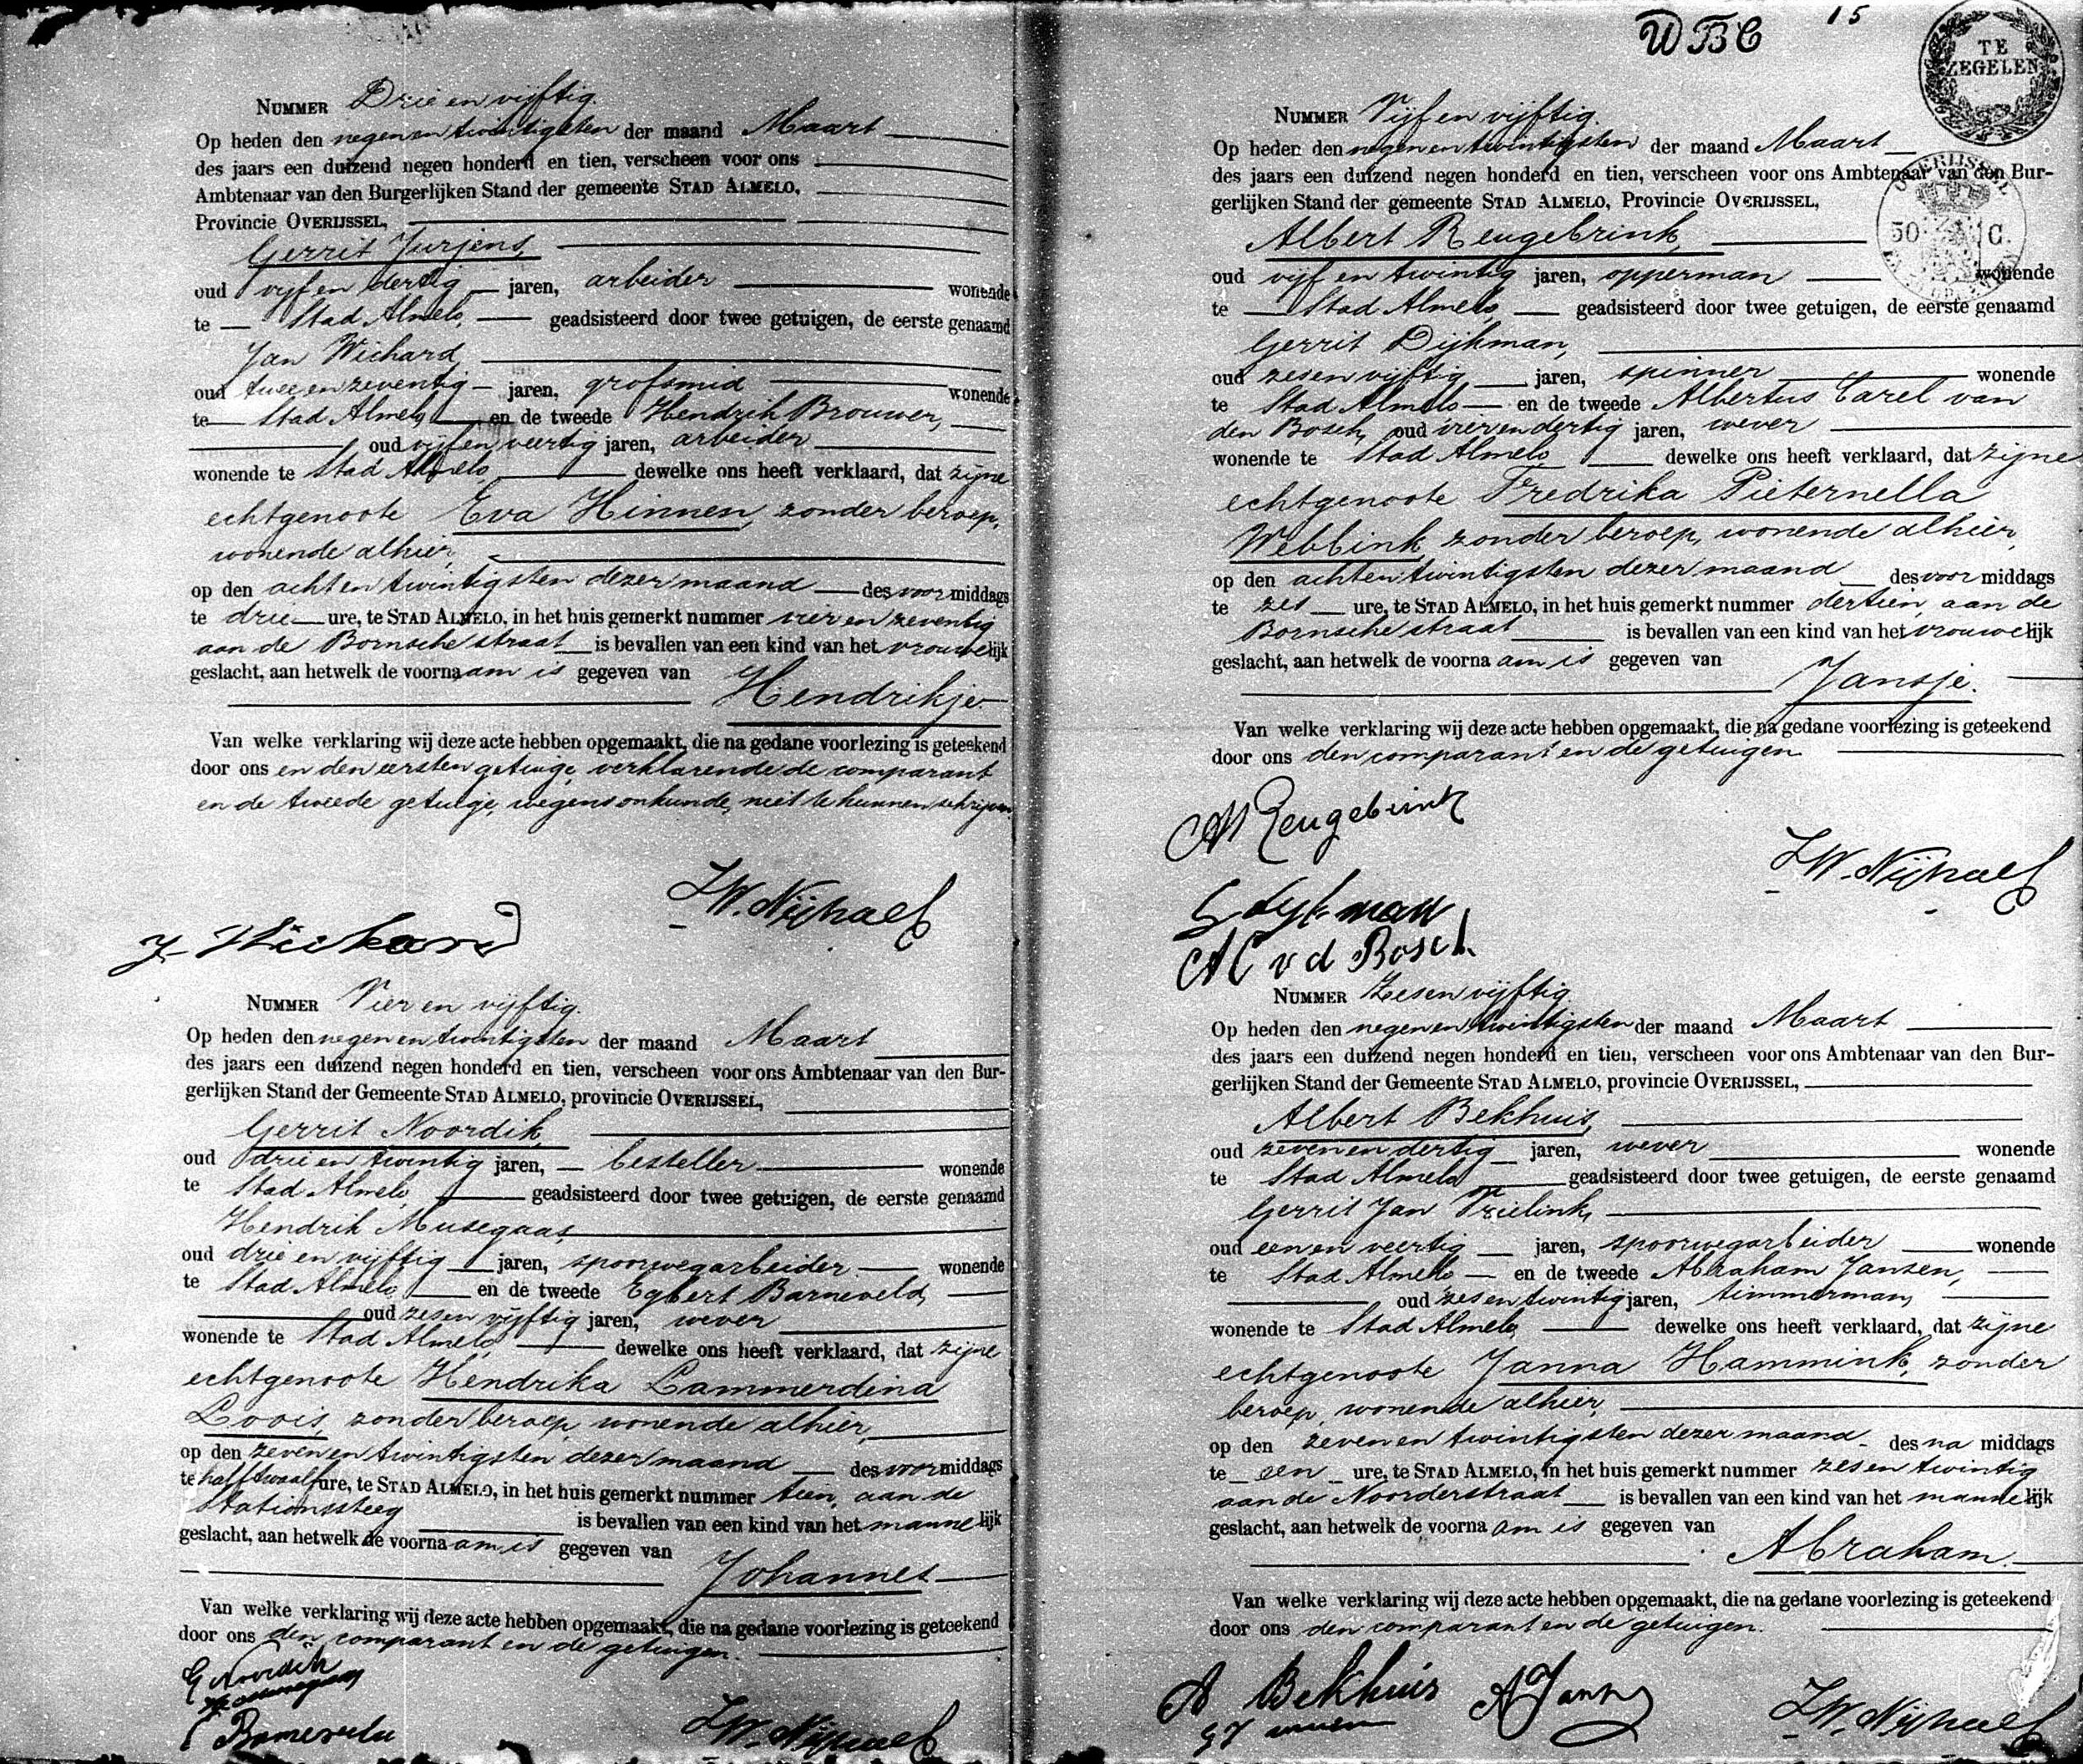 NUMMER Drie en vijftig.
Op heden den negenen twintigsten der maand Maart
des jaars een duizend negen honderd en tien, verscheen voor ons
Ambtenaar van den Burgerlijken Stand der gemeente STAD ALMELO,
Provincie OVERIJSSEL,
Gerrit Jurjens,
oud vijf en dertig jaren, arbeider wonende
te Stad Almelo, geadsisteerd door twee getuigen, de eerste genaamd
Jan Wichard,
oud twee en zeventig jaren, grofsmid wonende
te Stad Almelo, en de tweede Hendrik Brouwer,
oud vijf en veertig jaren, arbeider
wonende te Stad Almelo, dewelke ons heeft verklaard, dat zijne
echtgenoote Eva Hinnen, zonder beroep,
wonende alhier,
op den acht en twintigsten dezer maand des voormiddags
te drie ure, te STAD ALMELO, in het huis gemerkt nummer vier en zeventig
aan de Bornsche straat is bevallen van een kind van het vrouwelijk
geslacht, aan hetwelk de voornaam is gegeven van
Hendrikje
Van welke verklaring wij deze acte hebben opgemaakt, die na gedane voorlezing is geteekend
door ons en den eersten getuige, verklarende de comparant
en de tweede getuige, wegens onkunde, niet te kunnen schrijven.
J. W. Nijhaef
J. Wichard
NUMMER Vier en vijftig.
Op heden den negen en twintigsten der maand Maart
des jaars een duizend negen honderd en tien, verscheen voor ons Ambtenaar van den Bur-
gerlijken Stand der Gemeente STAD ALMELO, provincie OVERIJSSEL,
Gerrit Noordik,
oud drie en twintig jaren, besteller wonende
te Stad Almelo, geadsisteerd door twee getuigen, de eerste genaamd
Hendrik Musegaas,
oud drie en vijftig jaren, spoorwegarbeider wonende
te Stad Almelo en de tweede Egbert Barneveld,
oud zes en vijftig jaren, wever
wonende te Stad Almelo, dewelke ons heeft verklaard, dat zijne
echtgenoote Hendrika Lammerdina
Loois, zonder beroep, wonende alhier,
op den zeven en twintigsten dezer maand des voormiddags
te half twaalf ure, te STAD ALMELO, in het huis gemerkt nummer tien, aan de
Stationssteeg is bevallen van een kind van het mannelijk
geslacht, aan hetwelk de voornaam is gegeven van
Johannes
Van welke verklaring wij deze acte hebben opgemaakt, die na gedane voorlezing is geteekend
door ons den comparant en de getuigen.
G Noordik
E Barneveld
J. W. Nijhaef
WBC 15
TE ZEGELEN
OVERIJSSEL
50 C.
NUMMER Vijf en vijftig.
Op heden den negen en twintigsten der maand Maart
des jaars een duizend negen honderd en tien, verscheen voor ons Ambtenaar van den Bur-
gerlijken Stand der gemeente STAD ALMELO, Provincie OVERIJSSEL,
Albert Reugebrink,
oud vijf en twintig jaren, opperman wonende
te Stad Almelo, geadsisteerd door twee getuigen, de eerste genaamd
Gerrit Dijkman,
oud zes en vijftig jaren, spinner wonende
te Stad Almelo en de tweede Albertus Carel van
den Bosch, oud vier en dertig jaren, wever
wonende te Stad Almelo, dewelke ons heeft verklaard, dat zijne
echtgenoote Fredrika Pieternella
Webbink, zonder beroep, wonende alhier,
op den acht en twintigsten dezer maand des voormiddags
te zes ure, te STAD ALMELO, in het huis gemerkt nummer dertien, aan de
Bornsche straat is bevallen van een kind van het vrouwelijk
geslacht, aan hetwelk de voornaam is gegeven van
Jansje.
Van welke verklaring wij deze acte hebben opgemaakt, die na gedane voorlezing is geteekend
door ons den comparant en de getuigen
A Reugebrink
J. W. Nijhaef
G Dijkman
AC v d Bosch
NUMMER Zes en vijftig.
Op heden den negen en twintigsten der maand Maart
des jaars een duizend negen honderd en tien, verscheen voor ons Ambtenaar van den Bur-
gerlijken Stand der Gemeente STAD ALMELO, provincie OVERIJSSEL,
Albert Bekhuis,
oud zeven en dertig jaren, wever wonende
te Stad Almelo geadsisteerd door twee getuigen, de eerste genaamd
Gerrit Jan
oud een en veertig jaren, spoorwegarbeider wonende
te Stad Almelo en de tweede Abraham Jansen,
oud zes en twintig jaren, timmerman,
wonende te Stad Almelo, dewelke ons heeft verklaard, dat zijne
echtgenoote Janna Hammink, zonder
beroep, wonende alhier,
op den zeven en twintigsten dezer maand des na middags
te een ure, te STAD ALMELO, in het huis gemerkt nummer zes en twintig
aan de Noorderstraat is bevallen van een kind van het mannelijk
geslacht, aan hetwelk de voornaam is gegeven van
Abraham.
Van welke verklaring wij deze acte hebben opgemaakt, die na gedane voorlezing is geteekend
door ons den comparant en de getuigen.
A Bekhuis A Jansen
J. W. Nijhaef